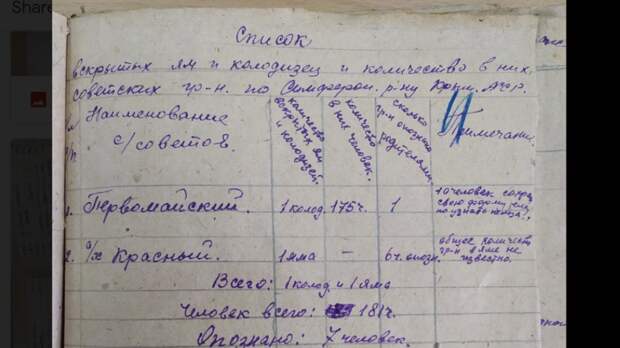 Share
Список
вскрытых ям и колодизец и количество в них
советских гр-н. по Симфероп. р-ну Крым. АССР.
Наименование с/советов.
количество вскрытых ям и колодизей.
количество в них человек.
сколько гр-н опознано родителями.
Примечание.
1. Первомайский. 1 колод. 175ч. 1 10 человек
2. с/х Красный. 1 яма — 6ч. опозн. общее количество гр-н в яме не известно.
Всего: 1 колод. и 1 яма
Человек всего: 181ч.
Опознано: 7 человек.